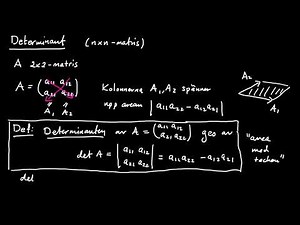 Determinant (n×n-matris)
A 2x2-matris
A = (a11 a12 a21 a22) Kolonnerna A1, A2 spänner
A1 A2 upp arean |a11a22 - a12a21|
A2
A1
Def: Determinanten av A = (a11 a12 a21 a22) ges av
det A = |a11 a12 a21 a22| = a11a22 - a12a21
"area
med
tecken"
det